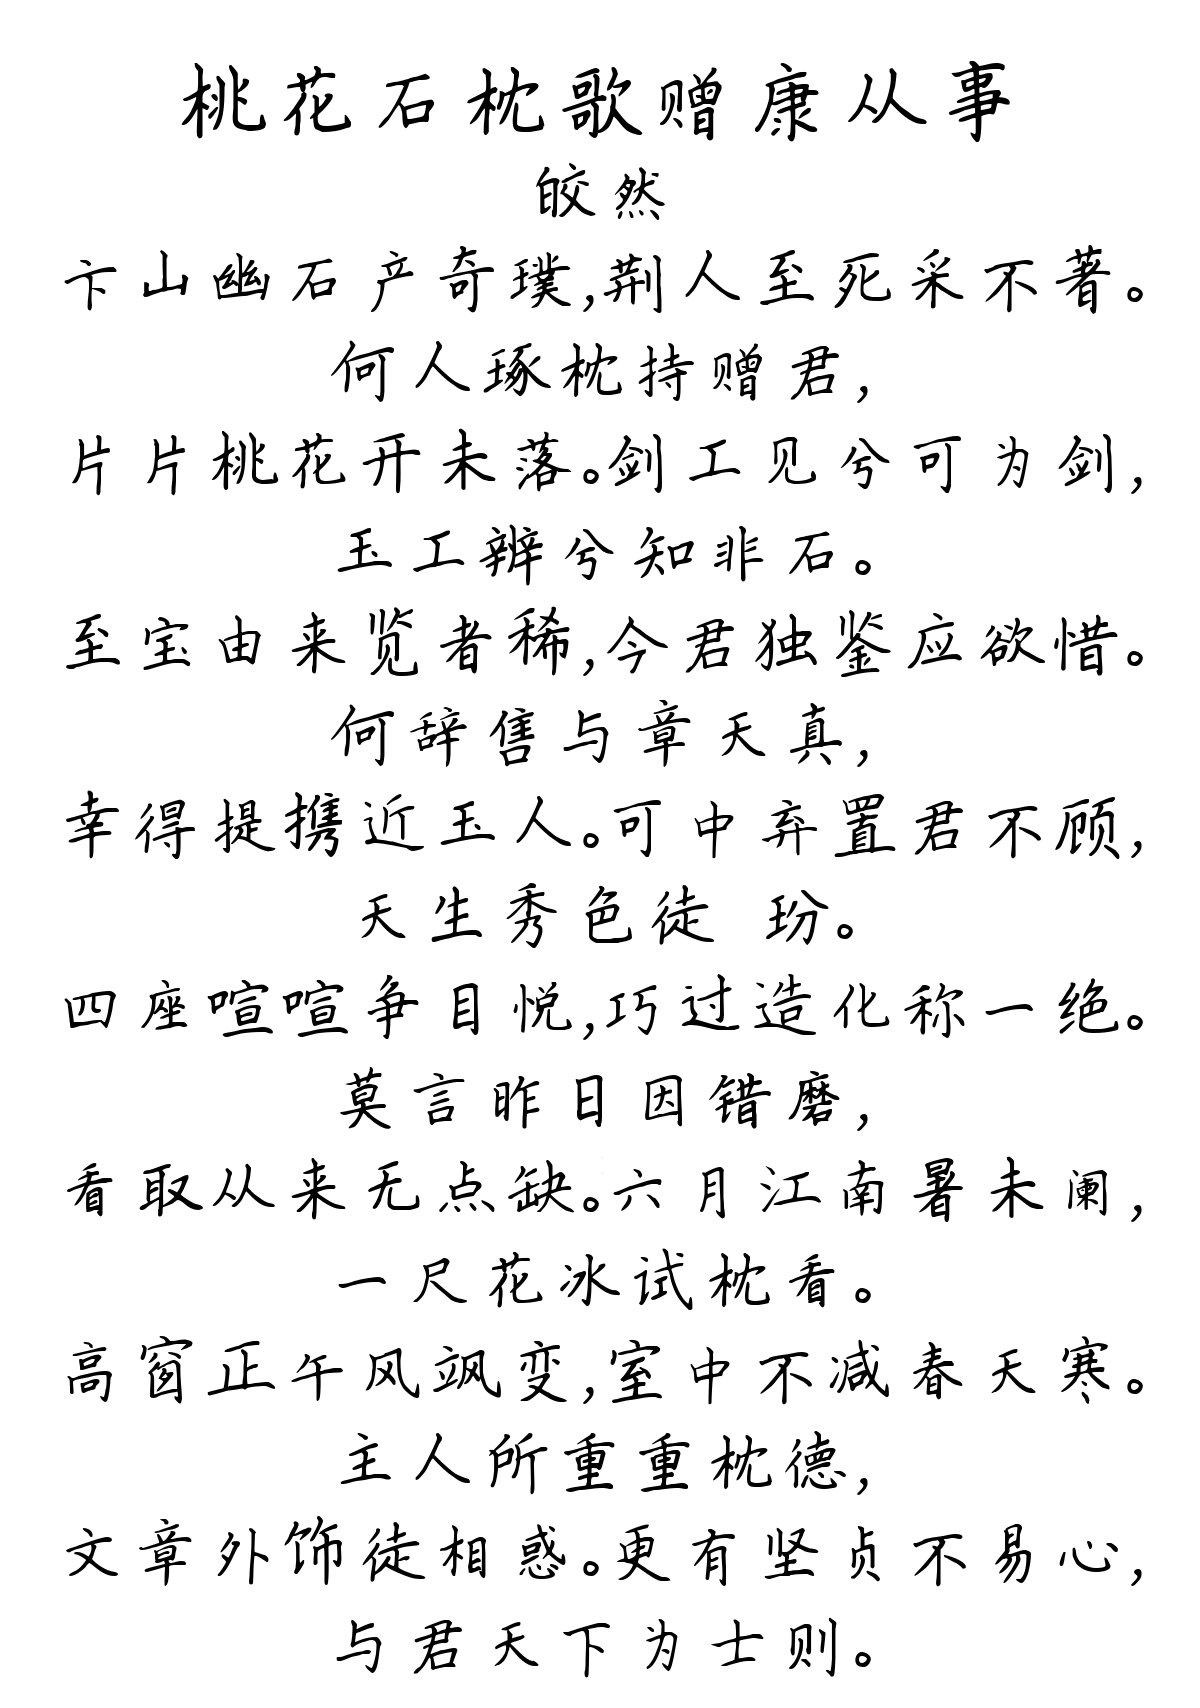 桃花石枕歌赠康从事
皎然
卞山幽石产奇璞,荆人至死采不著。
何人琢枕持赠君,
片片桃花开未落。剑工见兮可为剑,
玉工辨兮知非石。
至宝由来览者稀,今君独鉴应欲惜。
何辞售与章天真,
幸得提携近玉人。可中弃置君不顾,
天生秀色徒 玢。
四座喧喧争目悦,巧过造化称一绝。
莫言昨日因错磨,
看取从来无点缺。六月江南暑未阑,
一尺花冰试枕看。
高窗正午风飒变,室中不减春天寒。
主人所重重枕德,
文章外饰徒相惑。更有坚贞不易心,
与君天下为士则。